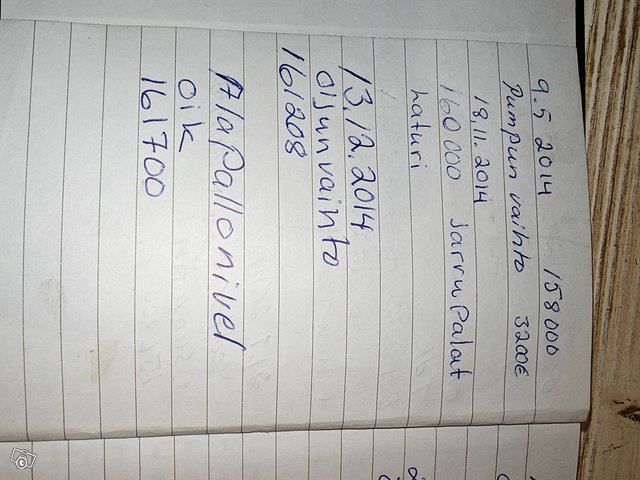 9.5 2014 158000
Pumpun vaihto 3200€
18.11.2014
160000 Jarru Palat
haturi
13.12.2014
öljunvaihto
161208
Ala Pallonivel
oik
161700